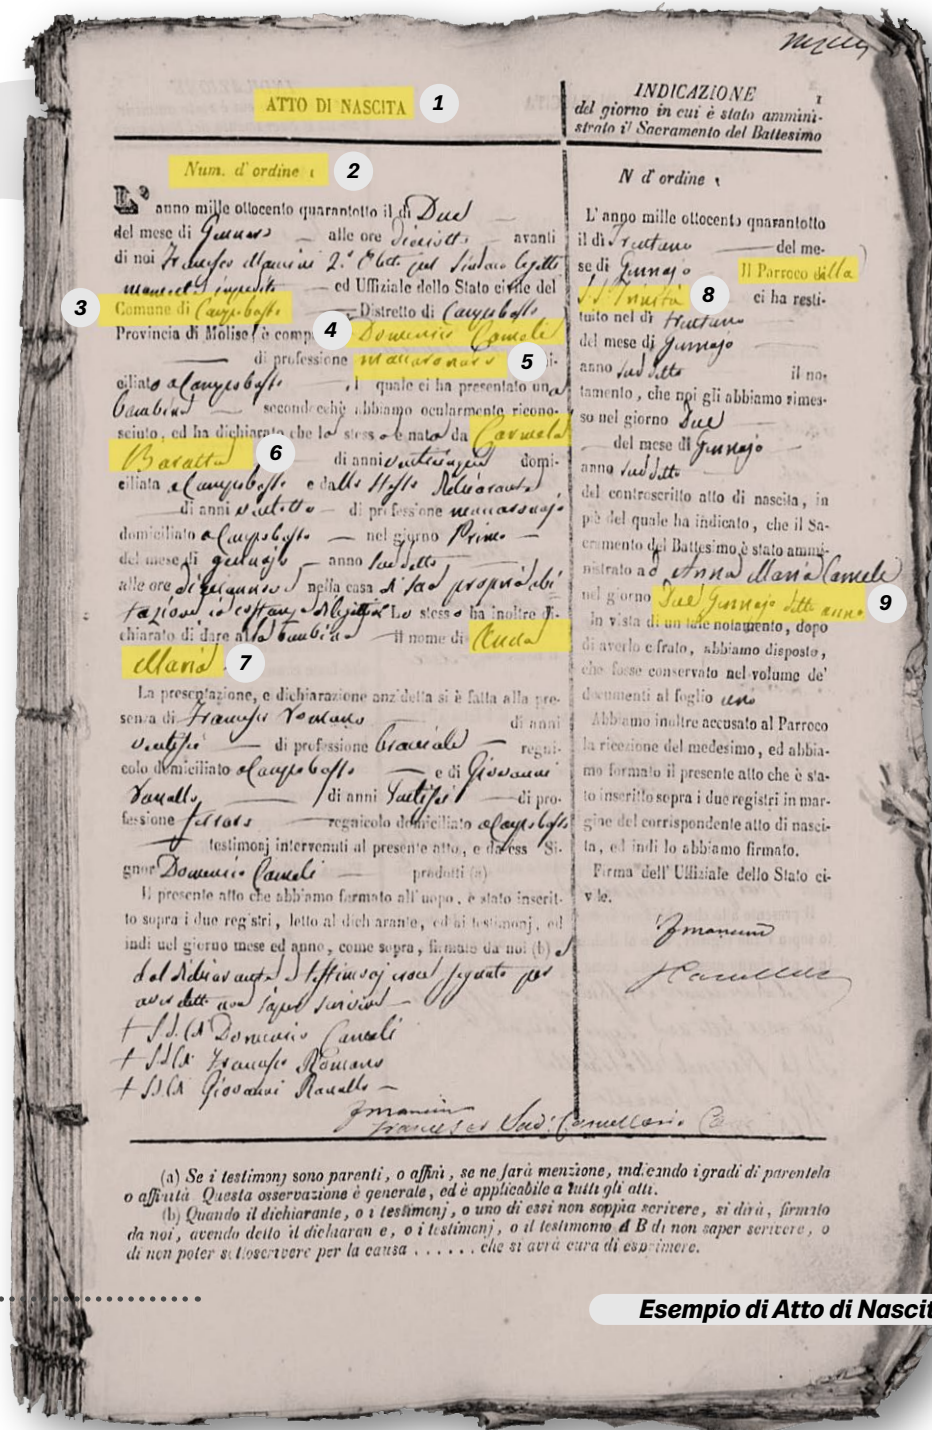 ATTO DI NASCITA 1
Num. d' ordine 1 2
L' anno mille ottocento quarantotto il dì Due
del mese di Gennaro alle ore diciotto avanti
di noi Francesco Mancini 2.° Eletto pel Sindaco
ed Uffiziale dello Stato civile del
3 Comune di Campobasso Distretto di Campobasso
Provincia di Molise, è comp 4 Domenico Cameli
di professione maccaronaro 5
ciliato a Campobasso, il quale ci ha presentato una
bambina secondochè abbiamo ocularmente ricono-
sciuto, ed ha dichiarato che lo stesso è nata da Carmela
Baratta 6 di anni venticinque domi-
ciliata a Campobasso e dallo stesso Dichiarante
di anni ventotto di professione maccaronajo
domiciliato a Campobasso nel giorno Primo
del mese di gennajo anno suddetto
alle ore nella casa di sua propria abi
tazione Lo stesso ha inoltre di-
chiarato di dare alla bambina il nome di Anna
Maria 7
La presentazione, e dichiarazione anzidetta si è fatta alla pre-
senza di Francesco Romano di anni
di professione bracciale regni-
colo domiciliato a Campobasso e di Giovanni
Ranallo di anni di pro-
fessione ferraro regnicolo domiciliato a Campobasso
testimonj intervenuti al presente atto, e da esso Si-
gnor Domenico Cameli prodotti (a)
Il presente atto che abbiamo formato all'uopo, è stato inscrit-
to sopra i due registri, letto al dichiarante, ed ai testimonj, ed
indi nel giorno mese ed anno, come sopra, firmato da noi (b)
dal dichiarante e testimonj croce segnato per
aver detto non saper scrivere
+ Domenico Cameli
+ Francesco Romano
+ Giovanni Ranallo
FMancini
Francesco
INDICAZIONE 1
del giorno in cui è stato ammini-
strato il Sacramento del Battesimo
N d' ordine 1
L' anno mille ottocento quarantotto
il dì Trentuno del me-
se di Gennajo Il Parroco della
SS. Trinità 8 ci ha resti-
tuito nel dì trentuno
del mese di Gennajo
anno suddetto il no-
tamento, che noi gli abbiamo rimes-
so nel giorno Due
del mese di Gennajo
anno suddetto
del controscritto atto di nascita, in
piè del quale ha indicato, che il Sa-
cramento del Battesimo è stato ammi-
nistrato ad Anna Maria Cameli
nel giorno Due Gennajo detto anno 9
In vista di un tale notamento, dopo
di averlo cifrato, abbiamo disposto,
che fosse conservato nel volume de'
documenti al foglio uno
Abbiamo inoltre accusato al Parroco
la ricezione del medesimo, ed abbia-
mo formato il presente atto che è sta-
to inscritto sopra i due registri in mar-
gine del corrispondente atto di nasci-
ta, ed indi lo abbiamo firmato.
Firma dell' Uffiziale dello Stato ci-
vile.
FMancini
(a) Se i testimonj sono parenti, o affini, se ne farà menzione, indicando i gradi di parentela
o affinità. Questa osservazione è generale, ed è applicabile a tutti gli atti.
(b) Quando il dichiarante, o i testimonj, o uno di essi non sappia scrivere, si dirà, firmato
da noi, avendo detto il dichiarane, o i testimonj, o il testimonio A B di non saper scrivere, o
di non poter sottoscrivere per la causa . . . . . . che si avrà cura di esprimere.
Esempio di Atto di Nascit